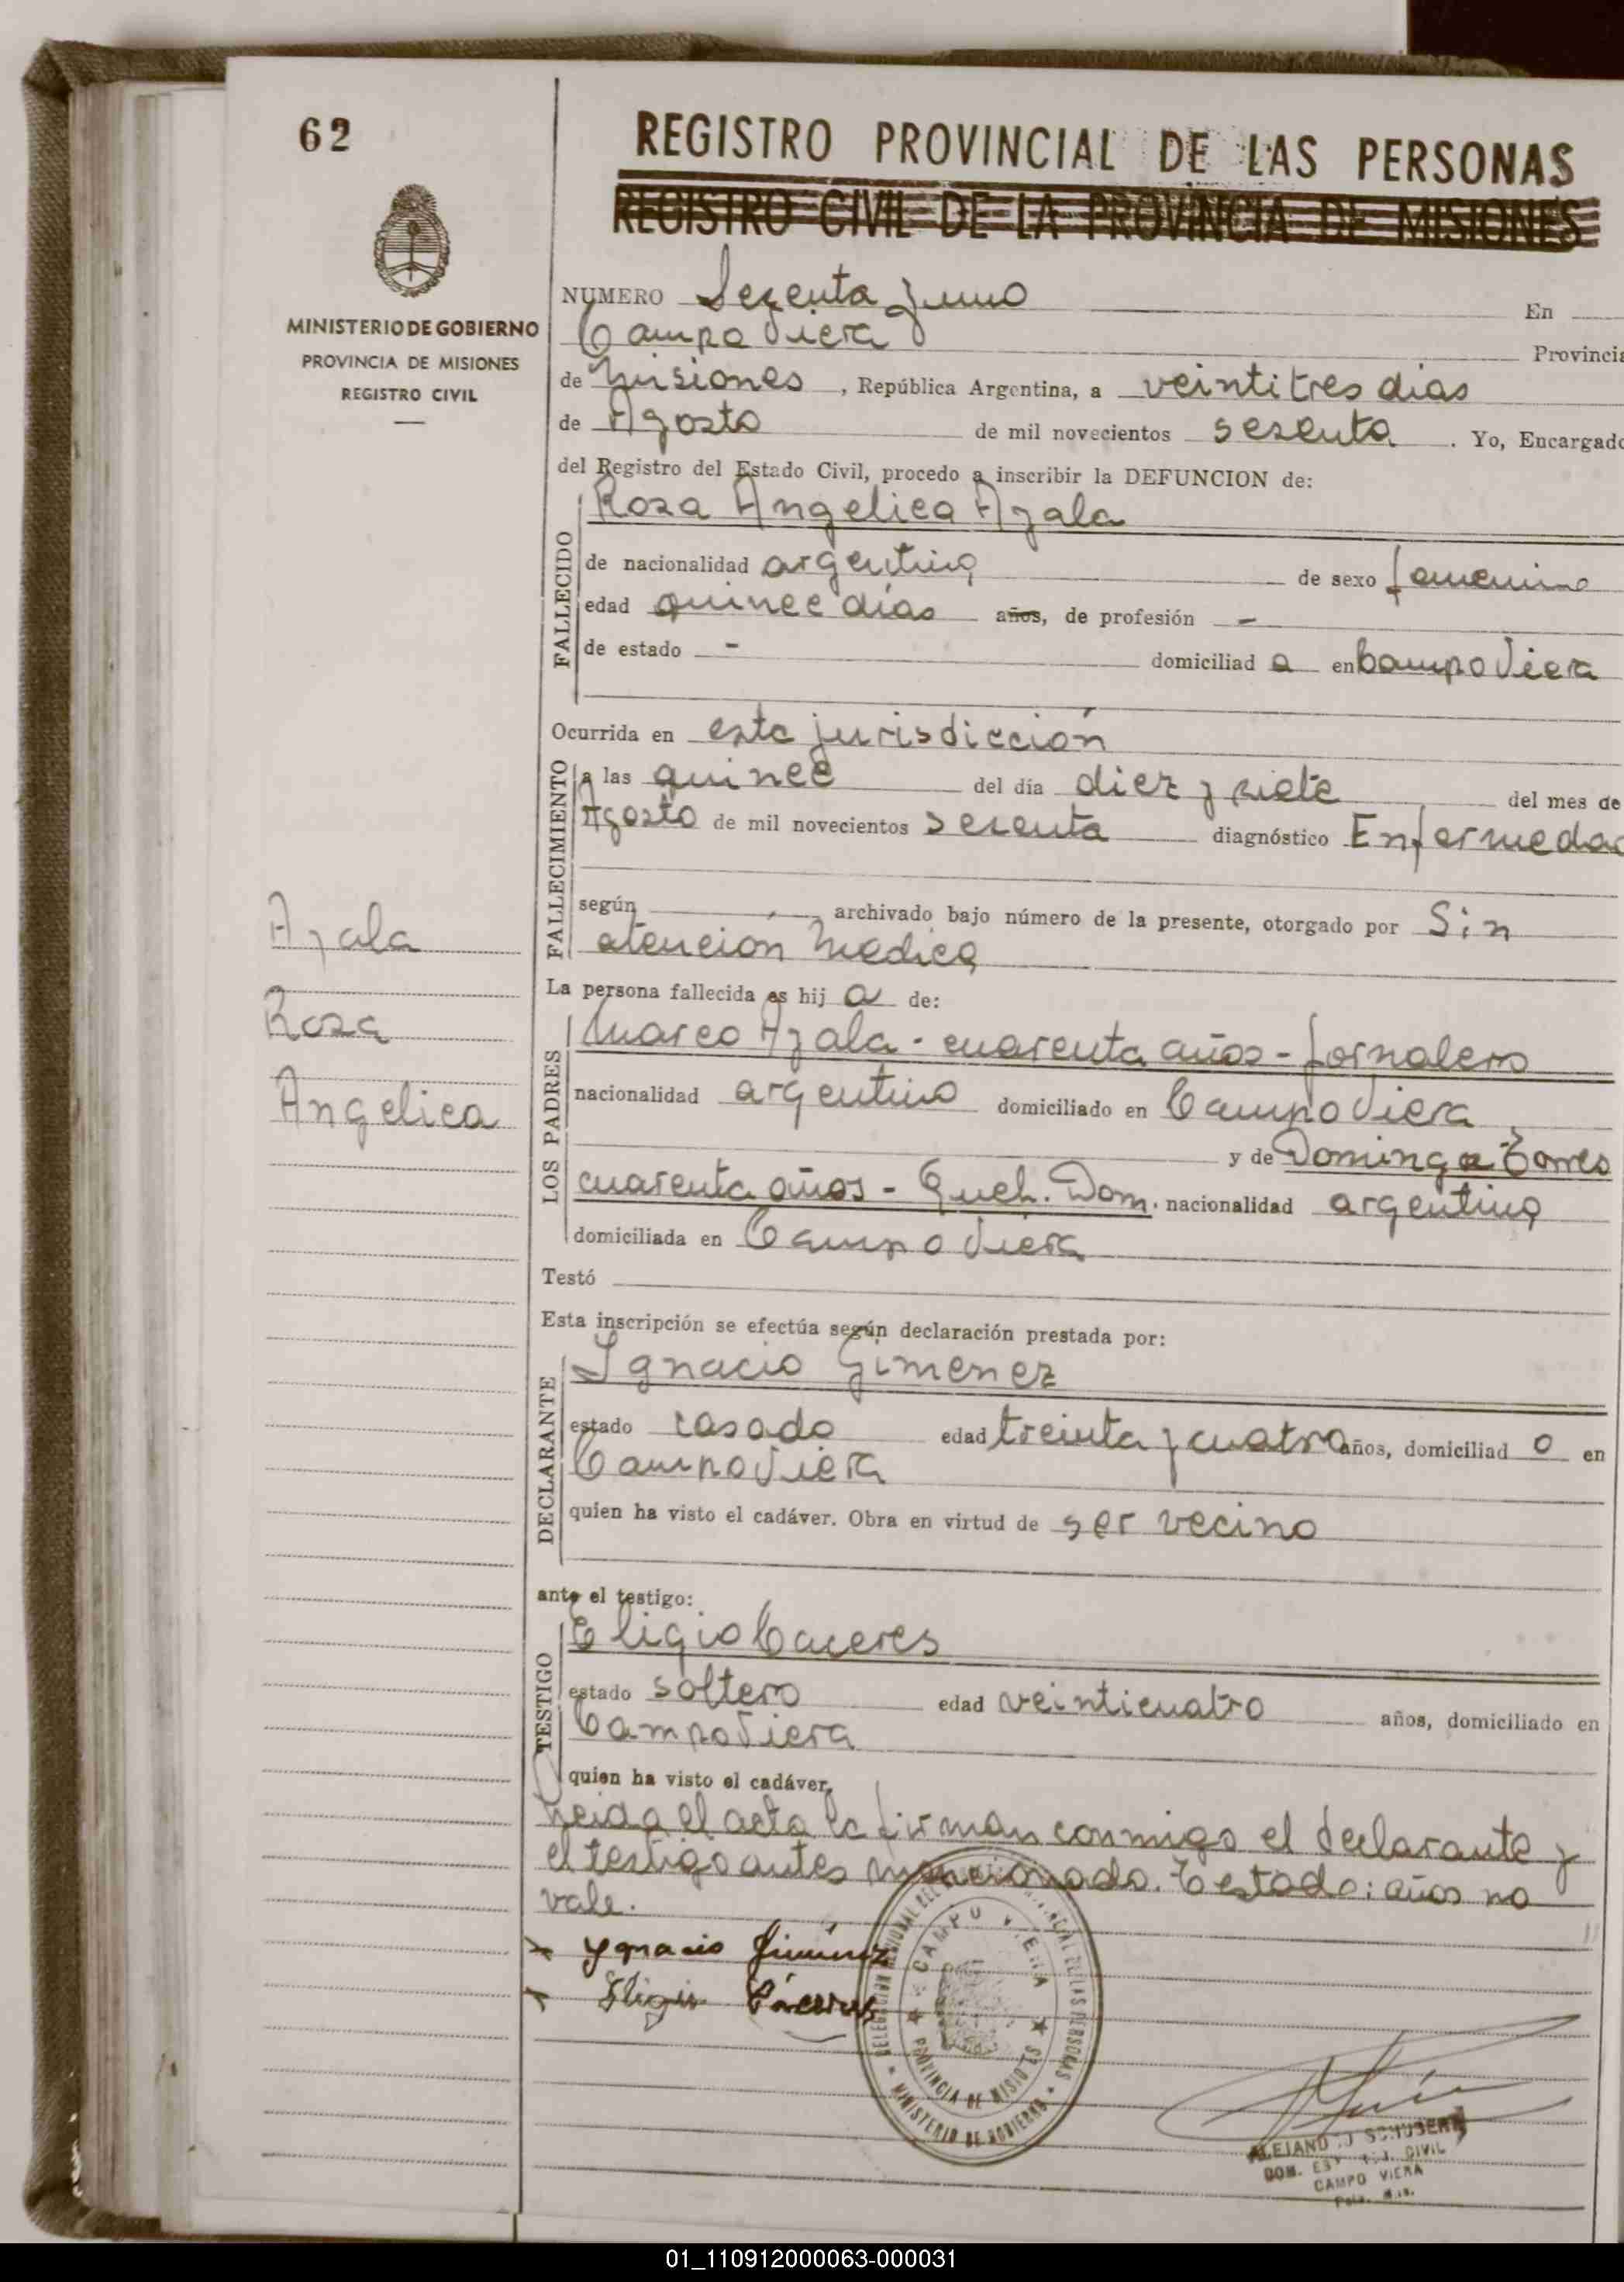 62
REGISTRO PROVINCIAL DE LAS PERSONAS
REGISTRO CIVIL DE LA PROVINCIA DE MISIONES
MINISTERIO DE GOBIERNO
PROVINCIA DE MISIONES
REGISTRO CIVIL
NUMERO Sesenta y uno En
Campo Viera Provincia
de Misiones, República Argentina, a veintitres dias
de Agosto de mil novecientos sesenta. Yo, Encargado
del Registro del Estado Civil, procedo a inscribir la DEFUNCION de:
FALLECIDO
Rosa Angelica Ayala
de nacionalidad argentina de sexo femenino
edad quince dias años, de profesión -
de estado - domiciliad a en Campo Viera
Ocurrida en esta jurisdicción
FALLECIMIENTO
a las quince del día diez y siete del mes de
Agosto de mil novecientos sesenta diagnóstico Enfermedad
según archivado bajo número de la presente, otorgado por Sin
atencion Medica
Ayala
Rosa
Angelica
La persona fallecida es hij a de:
LOS PADRES
Marco Ayala - cuarenta años - Jornalero
nacionalidad argentino domiciliado en Campo Viera
y de Dominga Torres
cuarenta años - Queh. Dom. nacionalidad argentina
domiciliada en Campo Viera
Testó
Esta inscripción se efectúa según declaración prestada por:
DECLARANTE
Ignacio Gimenez
estado casado edad treinta y cuatro años, domiciliad o en
Campo Viera
quien ha visto el cadáver. Obra en virtud de ser vecino
ante el testigo:
TESTIGO
Eligio Caceres
estado soltero edad veinticuatro años, domiciliado en
Campo Viera
quien ha visto el cadáver.
Leida el acta la firman conmigo el declarante y
el testigo antes mencionado. Testado: años no
vale.
Ygnacio Giménez
Eligio Cáceres
CAMPO VIERA
PROVINCIA DE MISIONES
MINISTERIO DE GOBIERNO
CIVIL
CAMPO VIERA
01_110912000063-000031